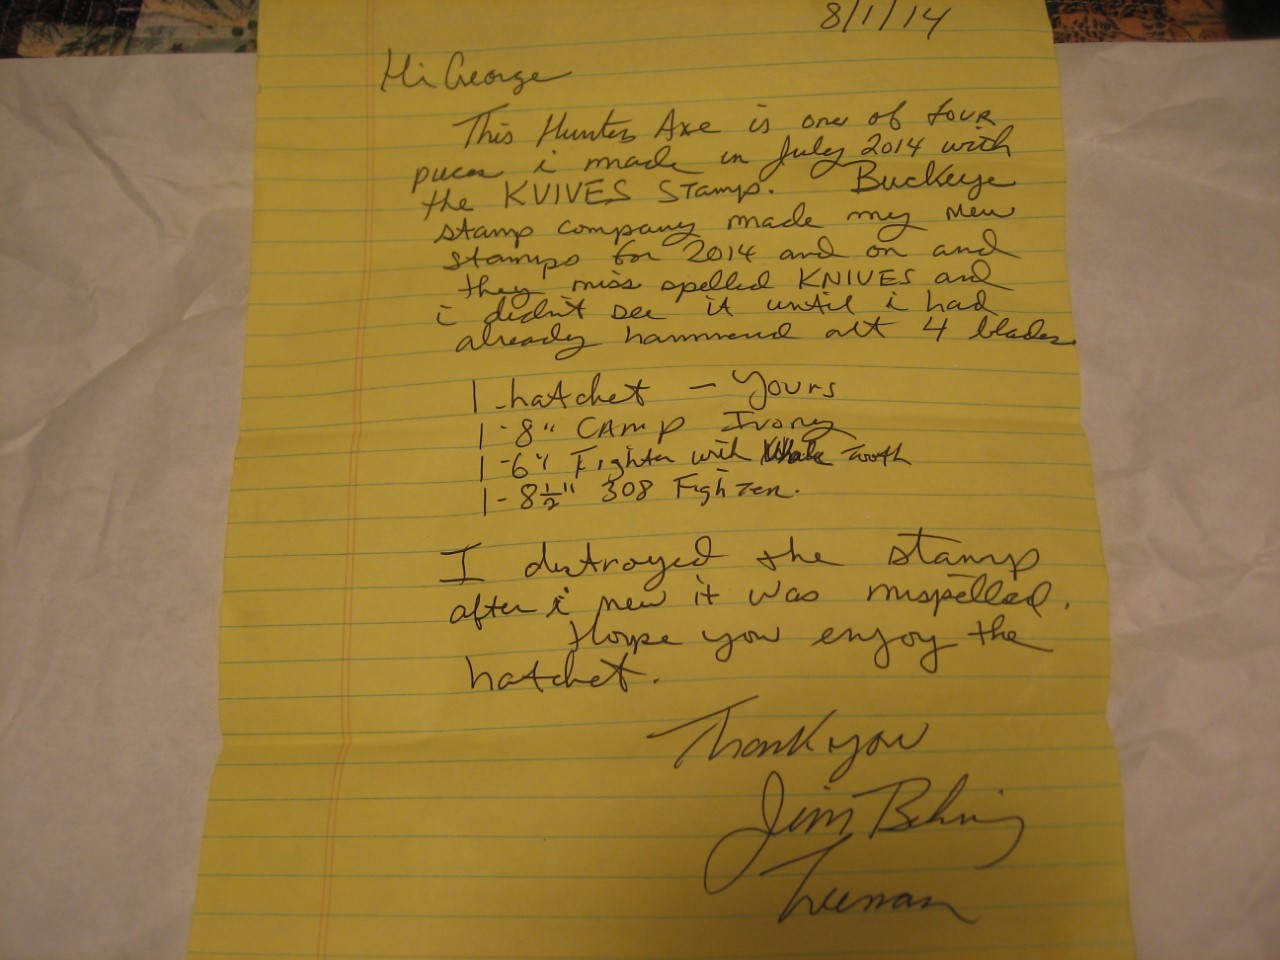 8/1/14
Hi George
This Hunters Axe is one of four
pieces i made in July 2014 with
the KVIVES Stamp. Buckeye
stamp company made my new
stamps for 2014 and on and
they miss spelled KNIVES and
i didn't see it until i had
already hammered out 4 blades
1 - hatchet - Yours
1 - 8" CAMP Ivory
1 - 6" Fighter with Whale Tooth
1 - 8½" 308 Fighter.
I destroyed the stamp
after i new it was mispelled.
Hope you enjoy the
hatchet.
Thank you
Jim Behring
Treeman